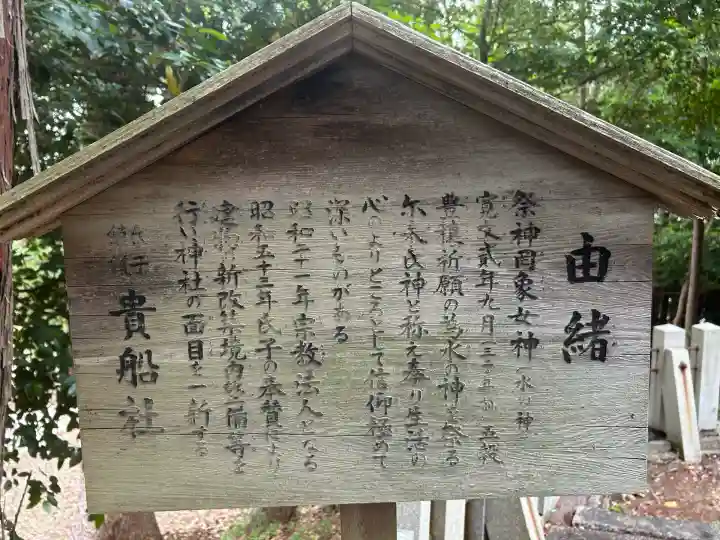 由緒
祭神罔象女神(水の神)
寛文貳年九月二十五日 五穀
豊穣祈願の為水の神を祭る
尓来氏神と称え奉り生活の
心のよりどころとして信仰極めて
深いものがある
昭和二十一年宗教法人となる
昭和五十三年氏子の奉賛により
建物新改築境内整備等を
行い神社の面目を一新する
氏子
貴船社